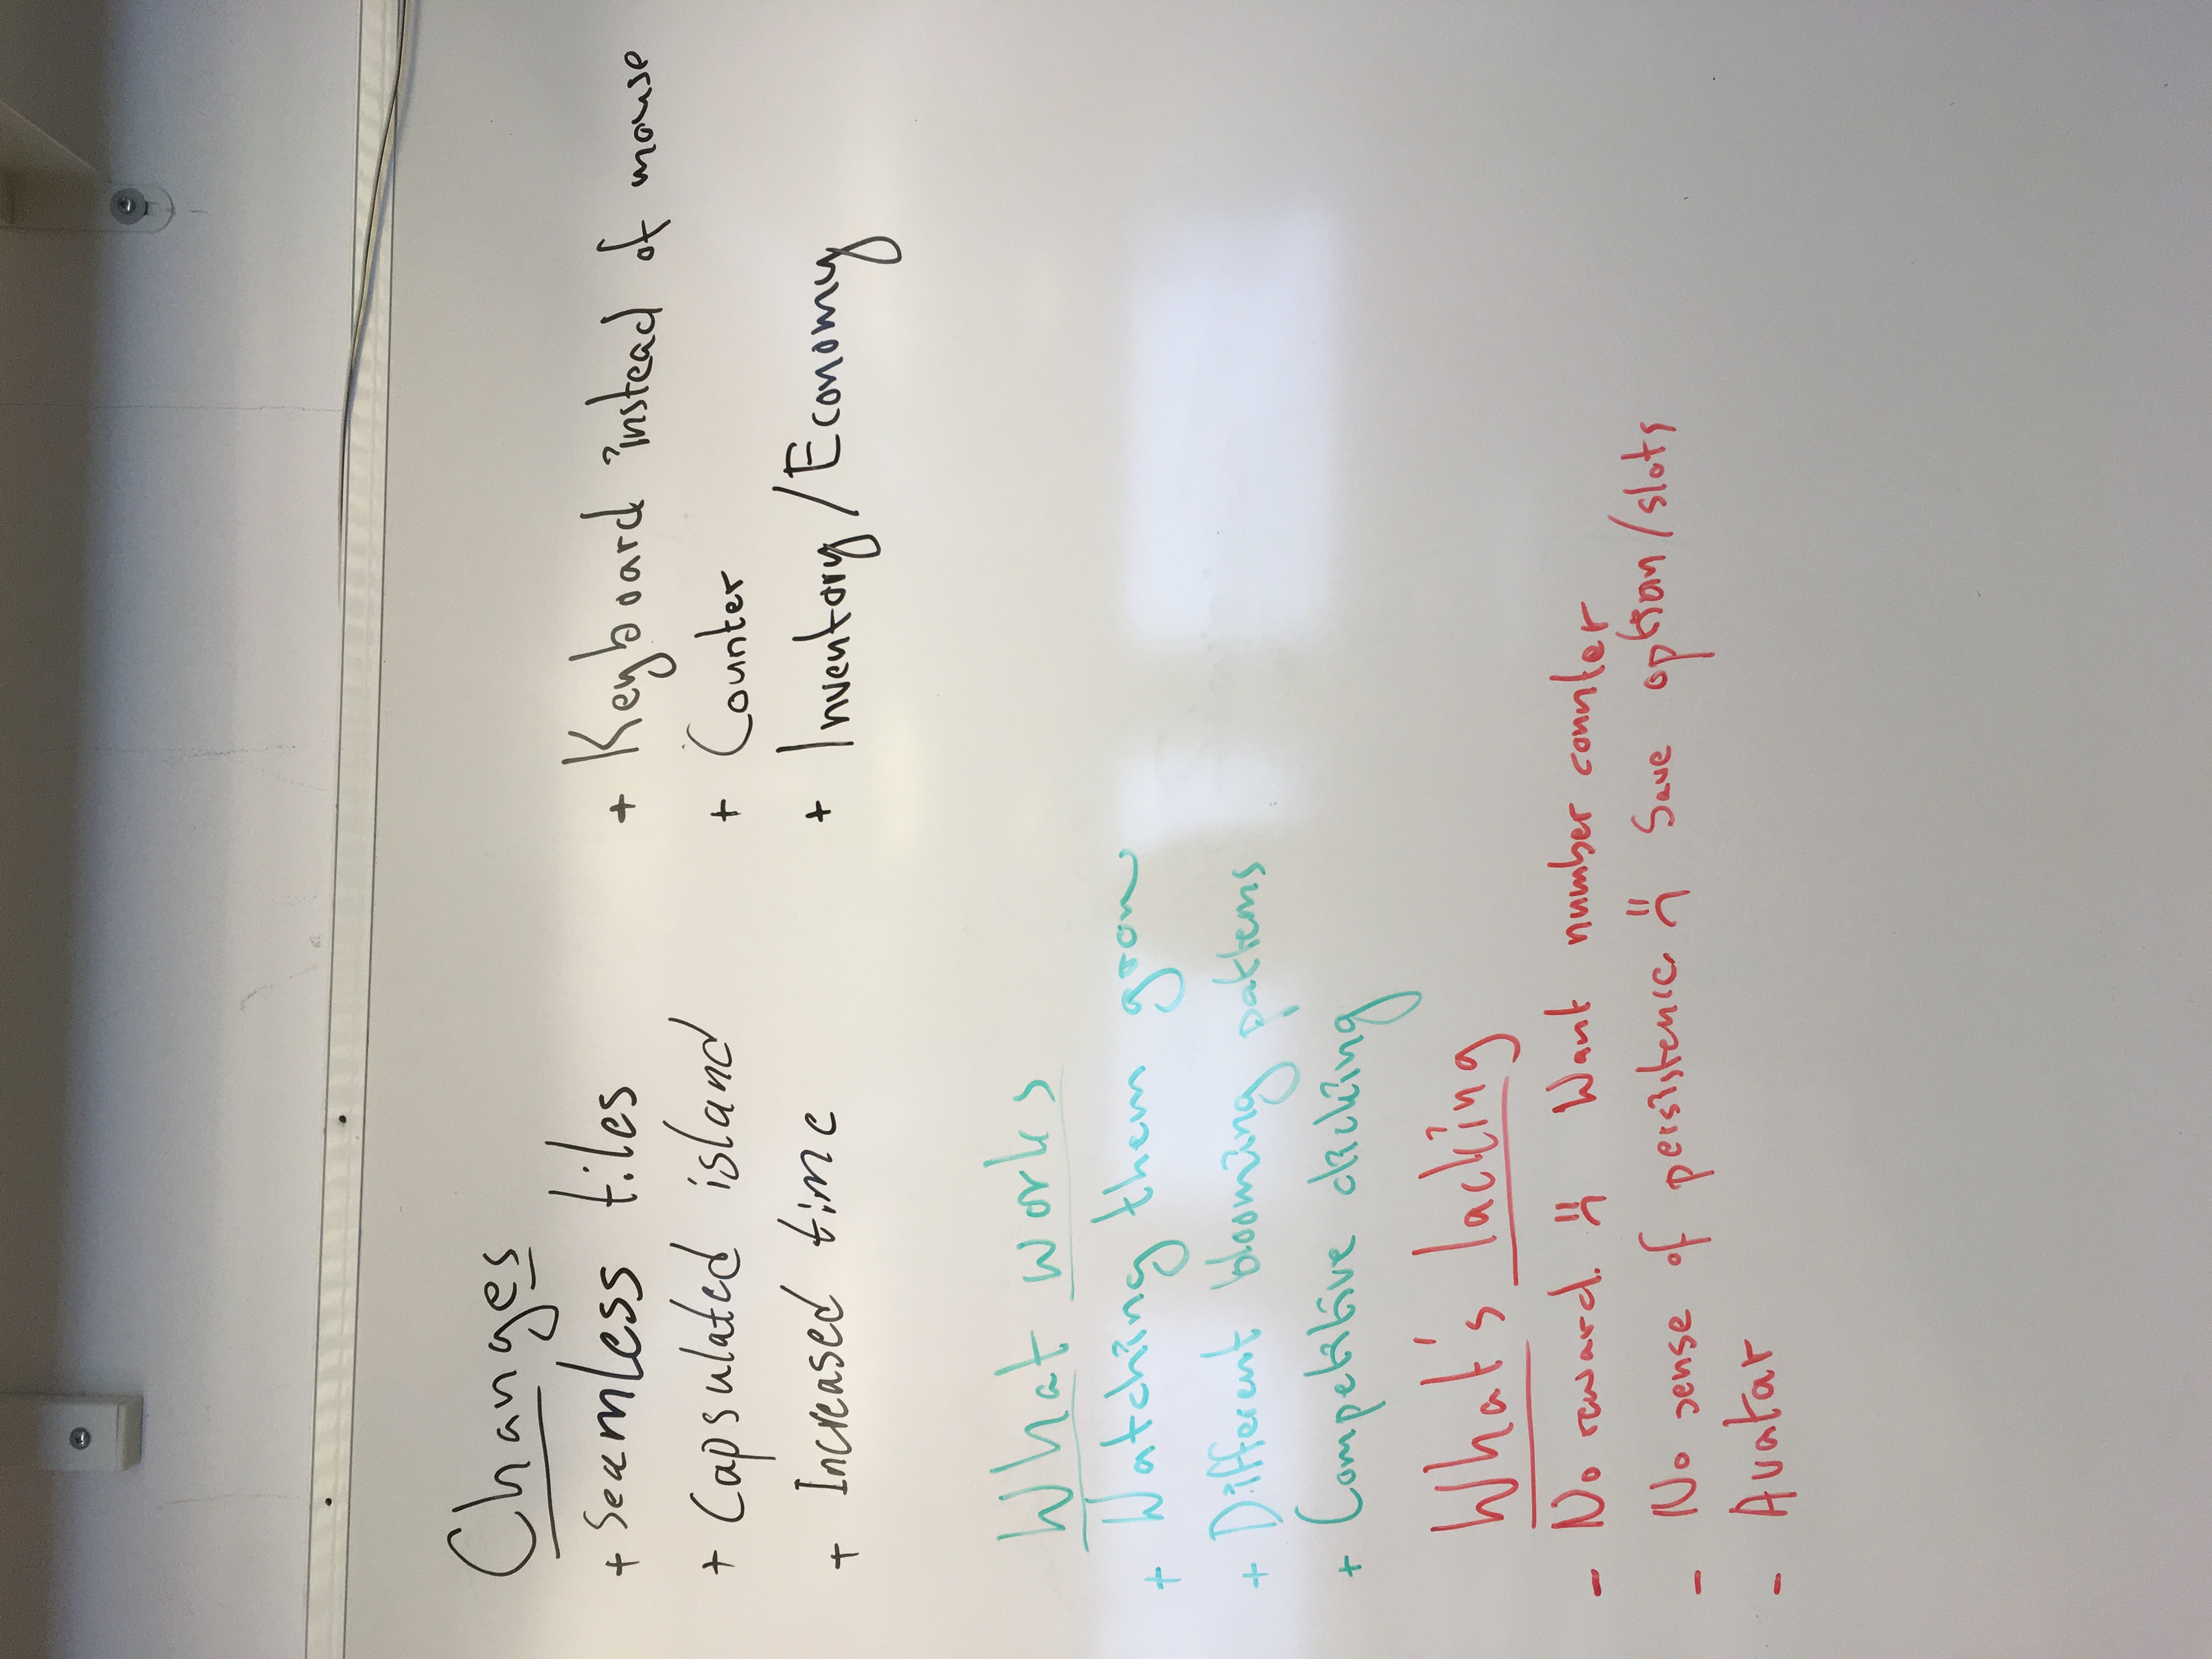 Changes
+ Seamless tiles
+ Capsulated island
+ Increased time
+ Keyboard instead of mouse
+ Counter
+ Inventory/Economy
What works
+ Watching them grow
+ Different blooming patterns
+ Competitive clicking
What's lacking
- No reward. :( Want number counter
- No sense of persistence :( Save option/slots
- Avatar